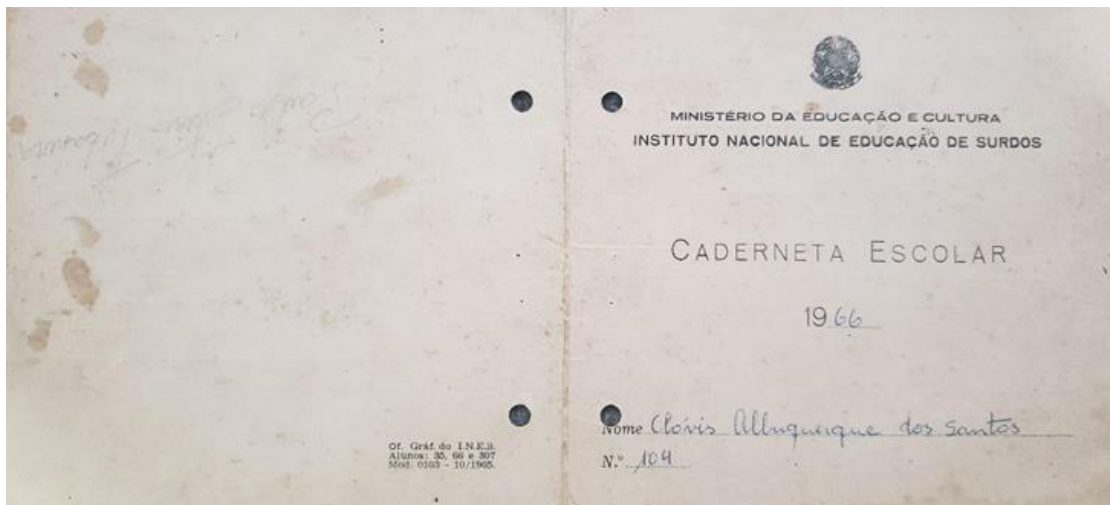 Of. Gráf. do I.N.E.S.
Alunos: 35, 66 e 307
Mod. 0103 - 10/1965.
MINISTÉRIO DA EDUCAÇÃO E CULTURA
INSTITUTO NACIONAL DE EDUCAÇÃO DE SURDOS
CADERNETA ESCOLAR
1966
Nome Clóvis Albuquerque dos Santos
N.º 104